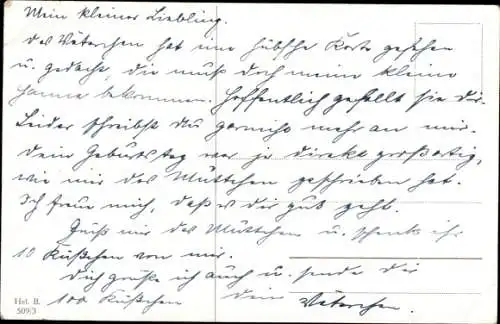 Mein kleiner Liebling.
Das Väterchen hat eine hübsche Karte gesehen
u. gedacht, die muß doch meine kleine
Hanne bekommen. Hoffentlich gefällt sie Dir.
Leider schreibst Du garnicht mehr an mir.
Dein Geburtstag war ja direkt großartig,
wie mir das Muttchen geschrieben hat.
Ich freue mich, daß es dir gut geht.
Grüß mir das Muttchen u. schenk ihr
10 Küßchen von mir.
Dich grüße ich auch u. sende Dir
100 Küßchen Dein Väterchen.
Hst. B.
509/3